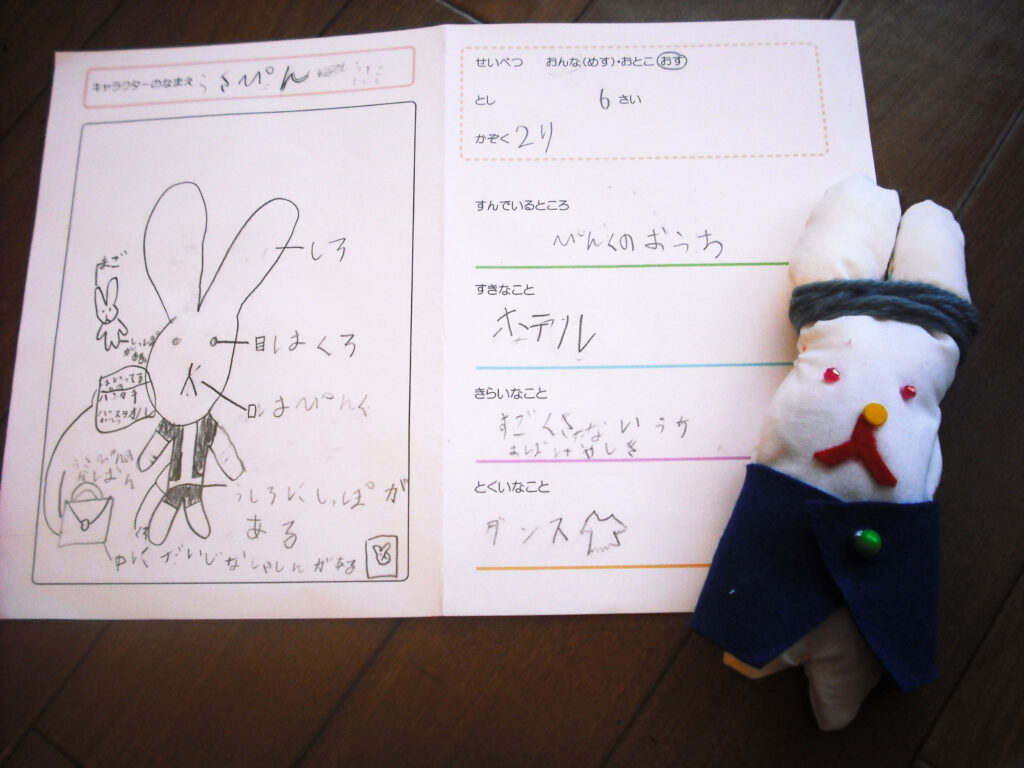 キャラクターのなまえ うさぴん
しろ
まご
しっぽ
がある
目はくろ
口はぴんく
はいってる
パンツ
バスタオル
うさぴんの
かばん
うしろにしっぽが
ある
中にだいじなしゃしんがある
せいべつ おんな(めす)・おとこ(おす)
とし 6 さい
かぞく 2り
すんでいるところ
ぴんくのおうち
すきなこと
ホテル
きらいなこと
すごくきたないうち
おばけやしき
とくいなこと
ダンス